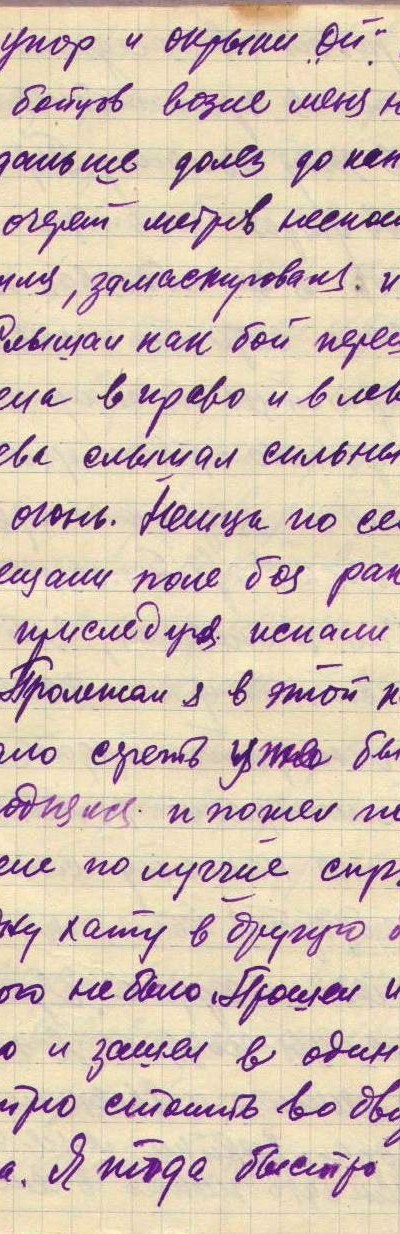 упор и окрыки „ой"
бойцов возле меня н
дальше долез до кан
очерет метров неско
иля, замаскировался. и
Слышал как бой пере
ена в право и в лев
ева слышал сильны
огонь. Немцы по се
ещали поле боя рак
приследуя. искали
Пролежал я в этой к
ало сереть уже бы
однялся. и пошел по
еле полугчие спр
дну хату в другую
ого не было. Прошел и
о и зашел в один
тро стоить во дву
а. Я тода быстро